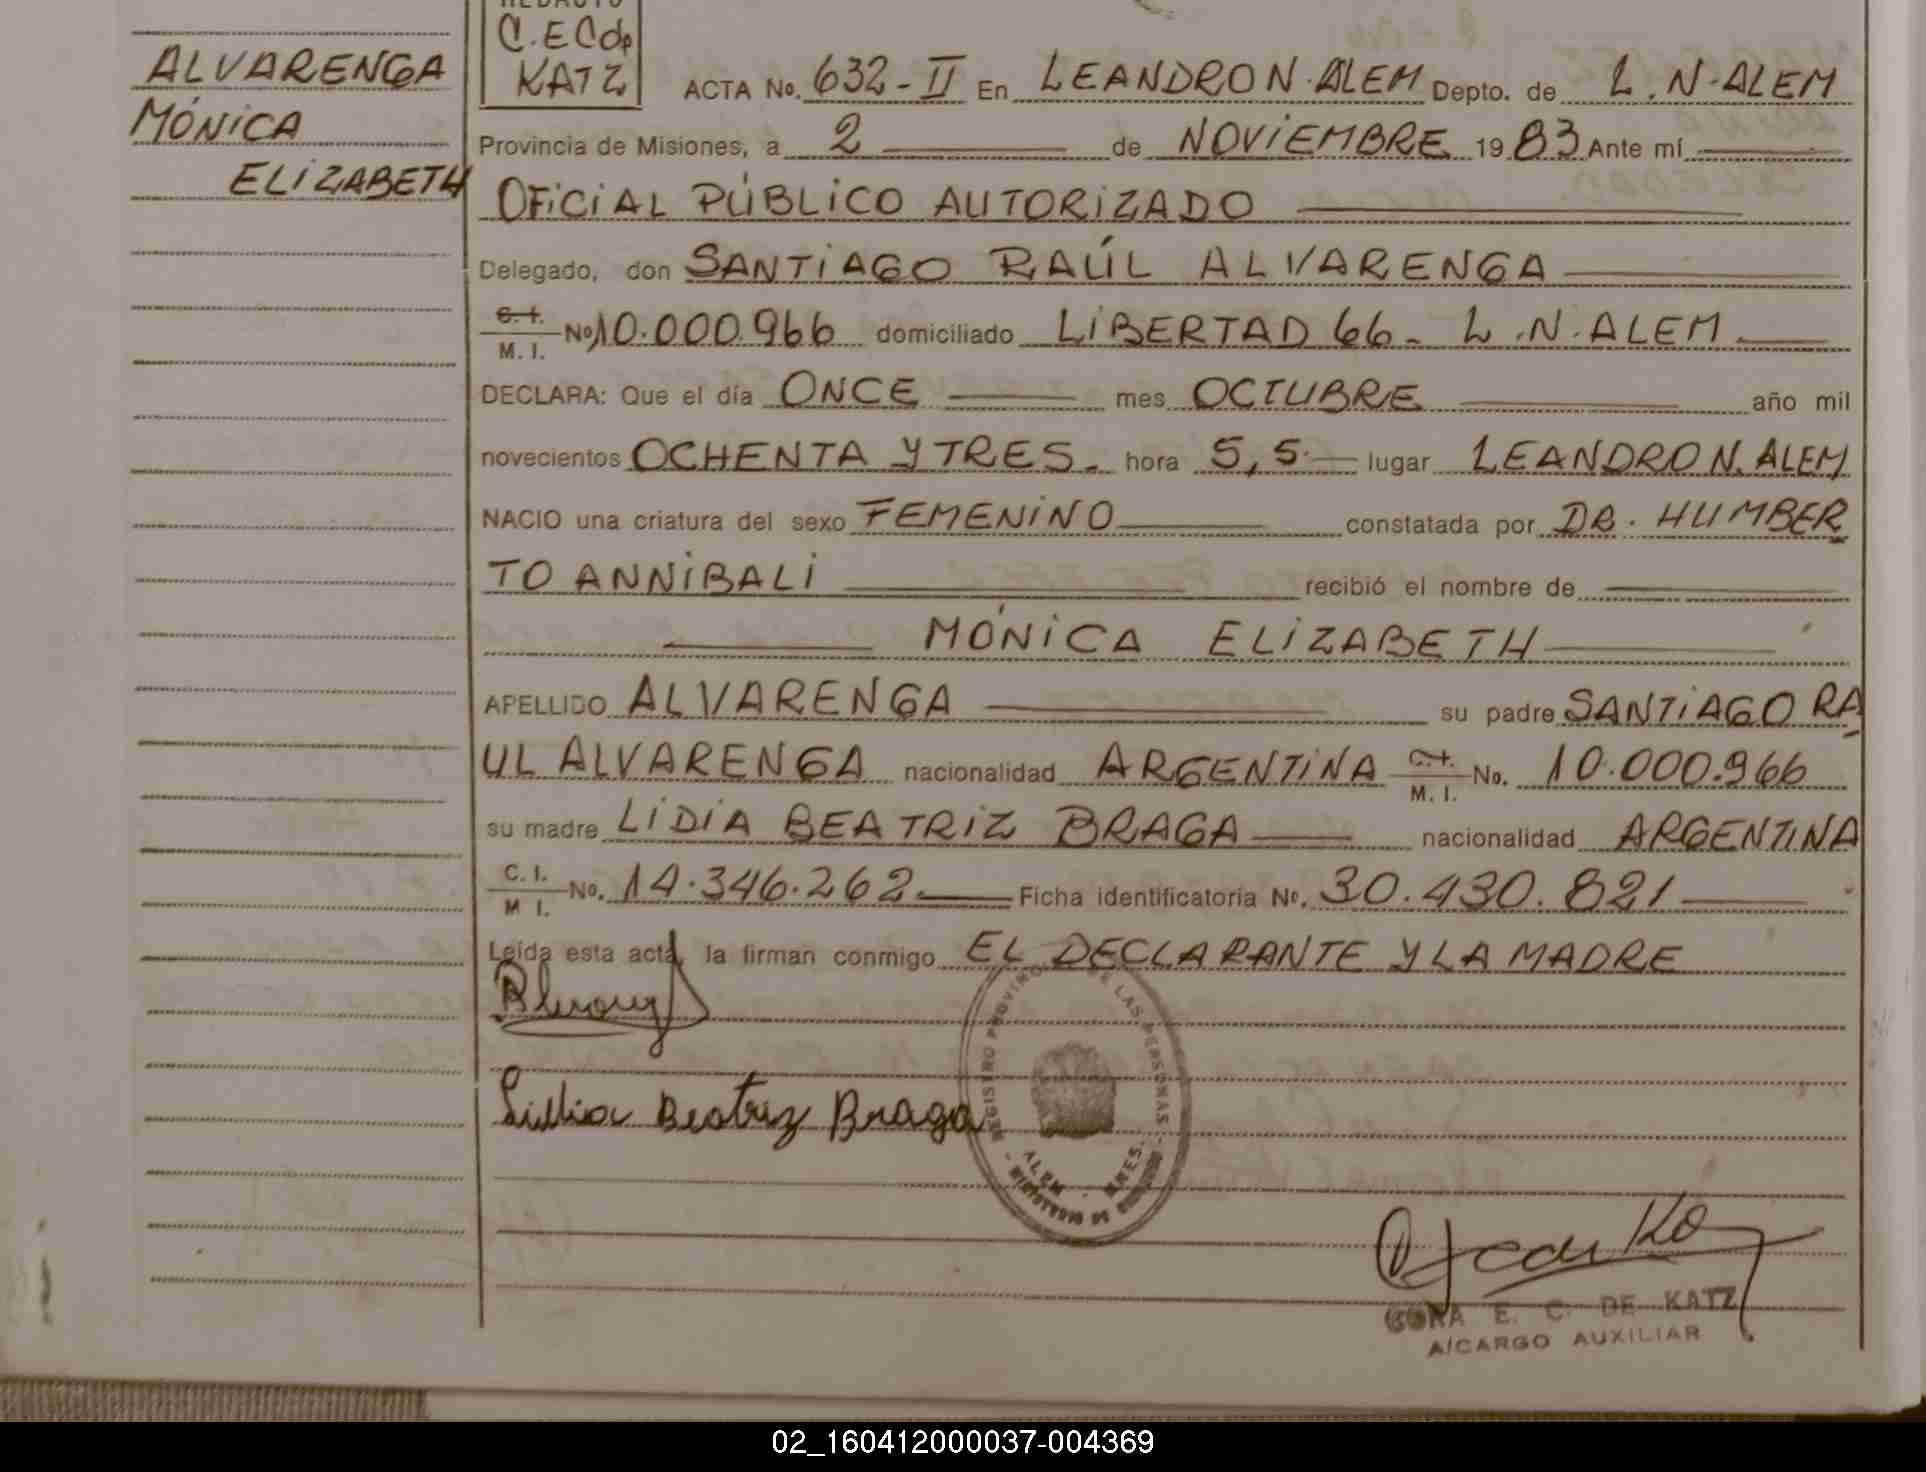 REDACTO
C.E.C de
KATZ
ALVARENGA
MÓNICA
ELIZABETH
ACTA No. 632-II En LEANDRO N. ALEM Depto. de L.N-ALEM
Provincia de Misiones, a 2 de NOVIEMBRE 1983 Ante mí
OFICIAL PÚBLICO AUTORIZADO
Delegado, don SANTIAGO RAÚL ALVARENGA
C.I. M.I. Nº 10.000.966 domiciliado LIBERTAD 66- L.N.ALEM
DECLARA: Que el día ONCE mes OCTUBRE año mil
novecientos OCHENTA Y TRES. hora 5,5 lugar LEANDRO N. ALEM
NACIO una criatura del sexo FEMENINO constatada por DR. HUMBER
TO ANNIBALI recibió el nombre de
MÓNICA ELIZABETH
APELLIDO ALVARENGA su padre SANTIAGO RA
UL ALVARENGA nacionalidad ARGENTINA C.I. M.I. No. 10.000.966
su madre LIDIA BEATRIZ BRAGA nacionalidad ARGENTINA
C.I. M I. No. 14.346.262 Ficha identificatoria Nº. 30.430.821
Leída esta acta, la firman conmigo EL DECLARANTE Y LA MADRE
Lidia Beatriz Braga
REGISTRO PROVINCIAL DE LAS PERSONAS
ALEM - MNES.
MINISTERIO DE GOBIERNO
CORA E. C. DE KATZ
A/CARGO AUXILIAR
02_160412000037-004369